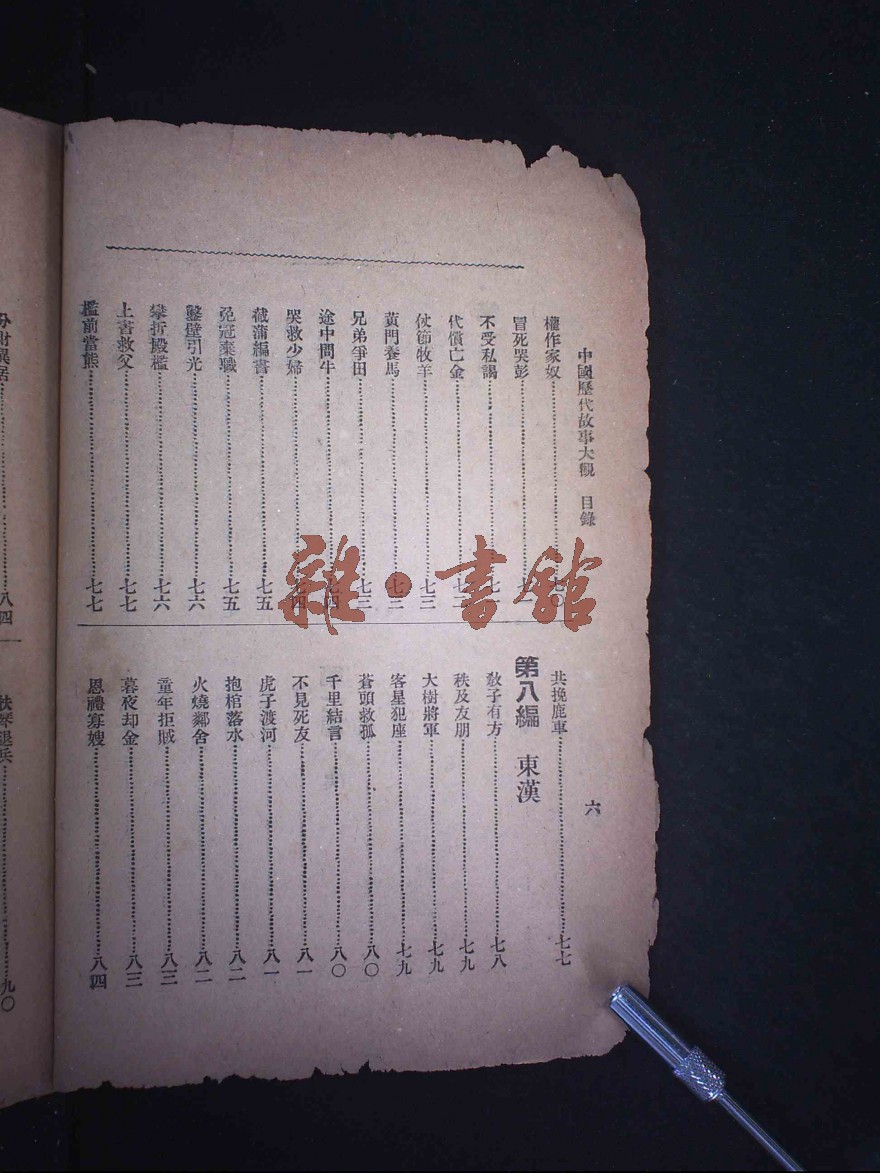 中國歷代故事大觀 目錄
六
權作家奴 七〇
冒死哭彭
不受私謁
代償亡金
仗節牧羊 七三
黃門養馬
兄弟爭田 七三
途中問牛
哭救少婦
截蒲編書 七五
免冠棄職 七五
鑿壁引光 七六
攀折殿檻 七六
上書救父 七七
檻前當熊 七七
共挽鹿車 七七
第八編 東漢
敎子有方 七八
秩及友朋 七九
大樹將軍 七九
客星犯座 七九
蒼頭救孤 八〇
千里結言 八〇
不見死友 八一
虎子渡河 八一
抱棺落水 八二
火燒鄰舍 八二
童年拒賊 八三
暮夜却金 八三
恩禮寡嫂 八四
分財異居 八四
九〇
雜·書館